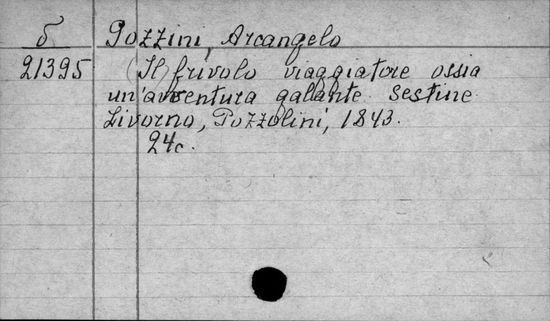 б
21395
Pozzini, Arcangelo
(Il) frivolo viaggiatore ossia
un'avventura galante. Sestine
Livorno, Pozzolini, 1843.
24c.